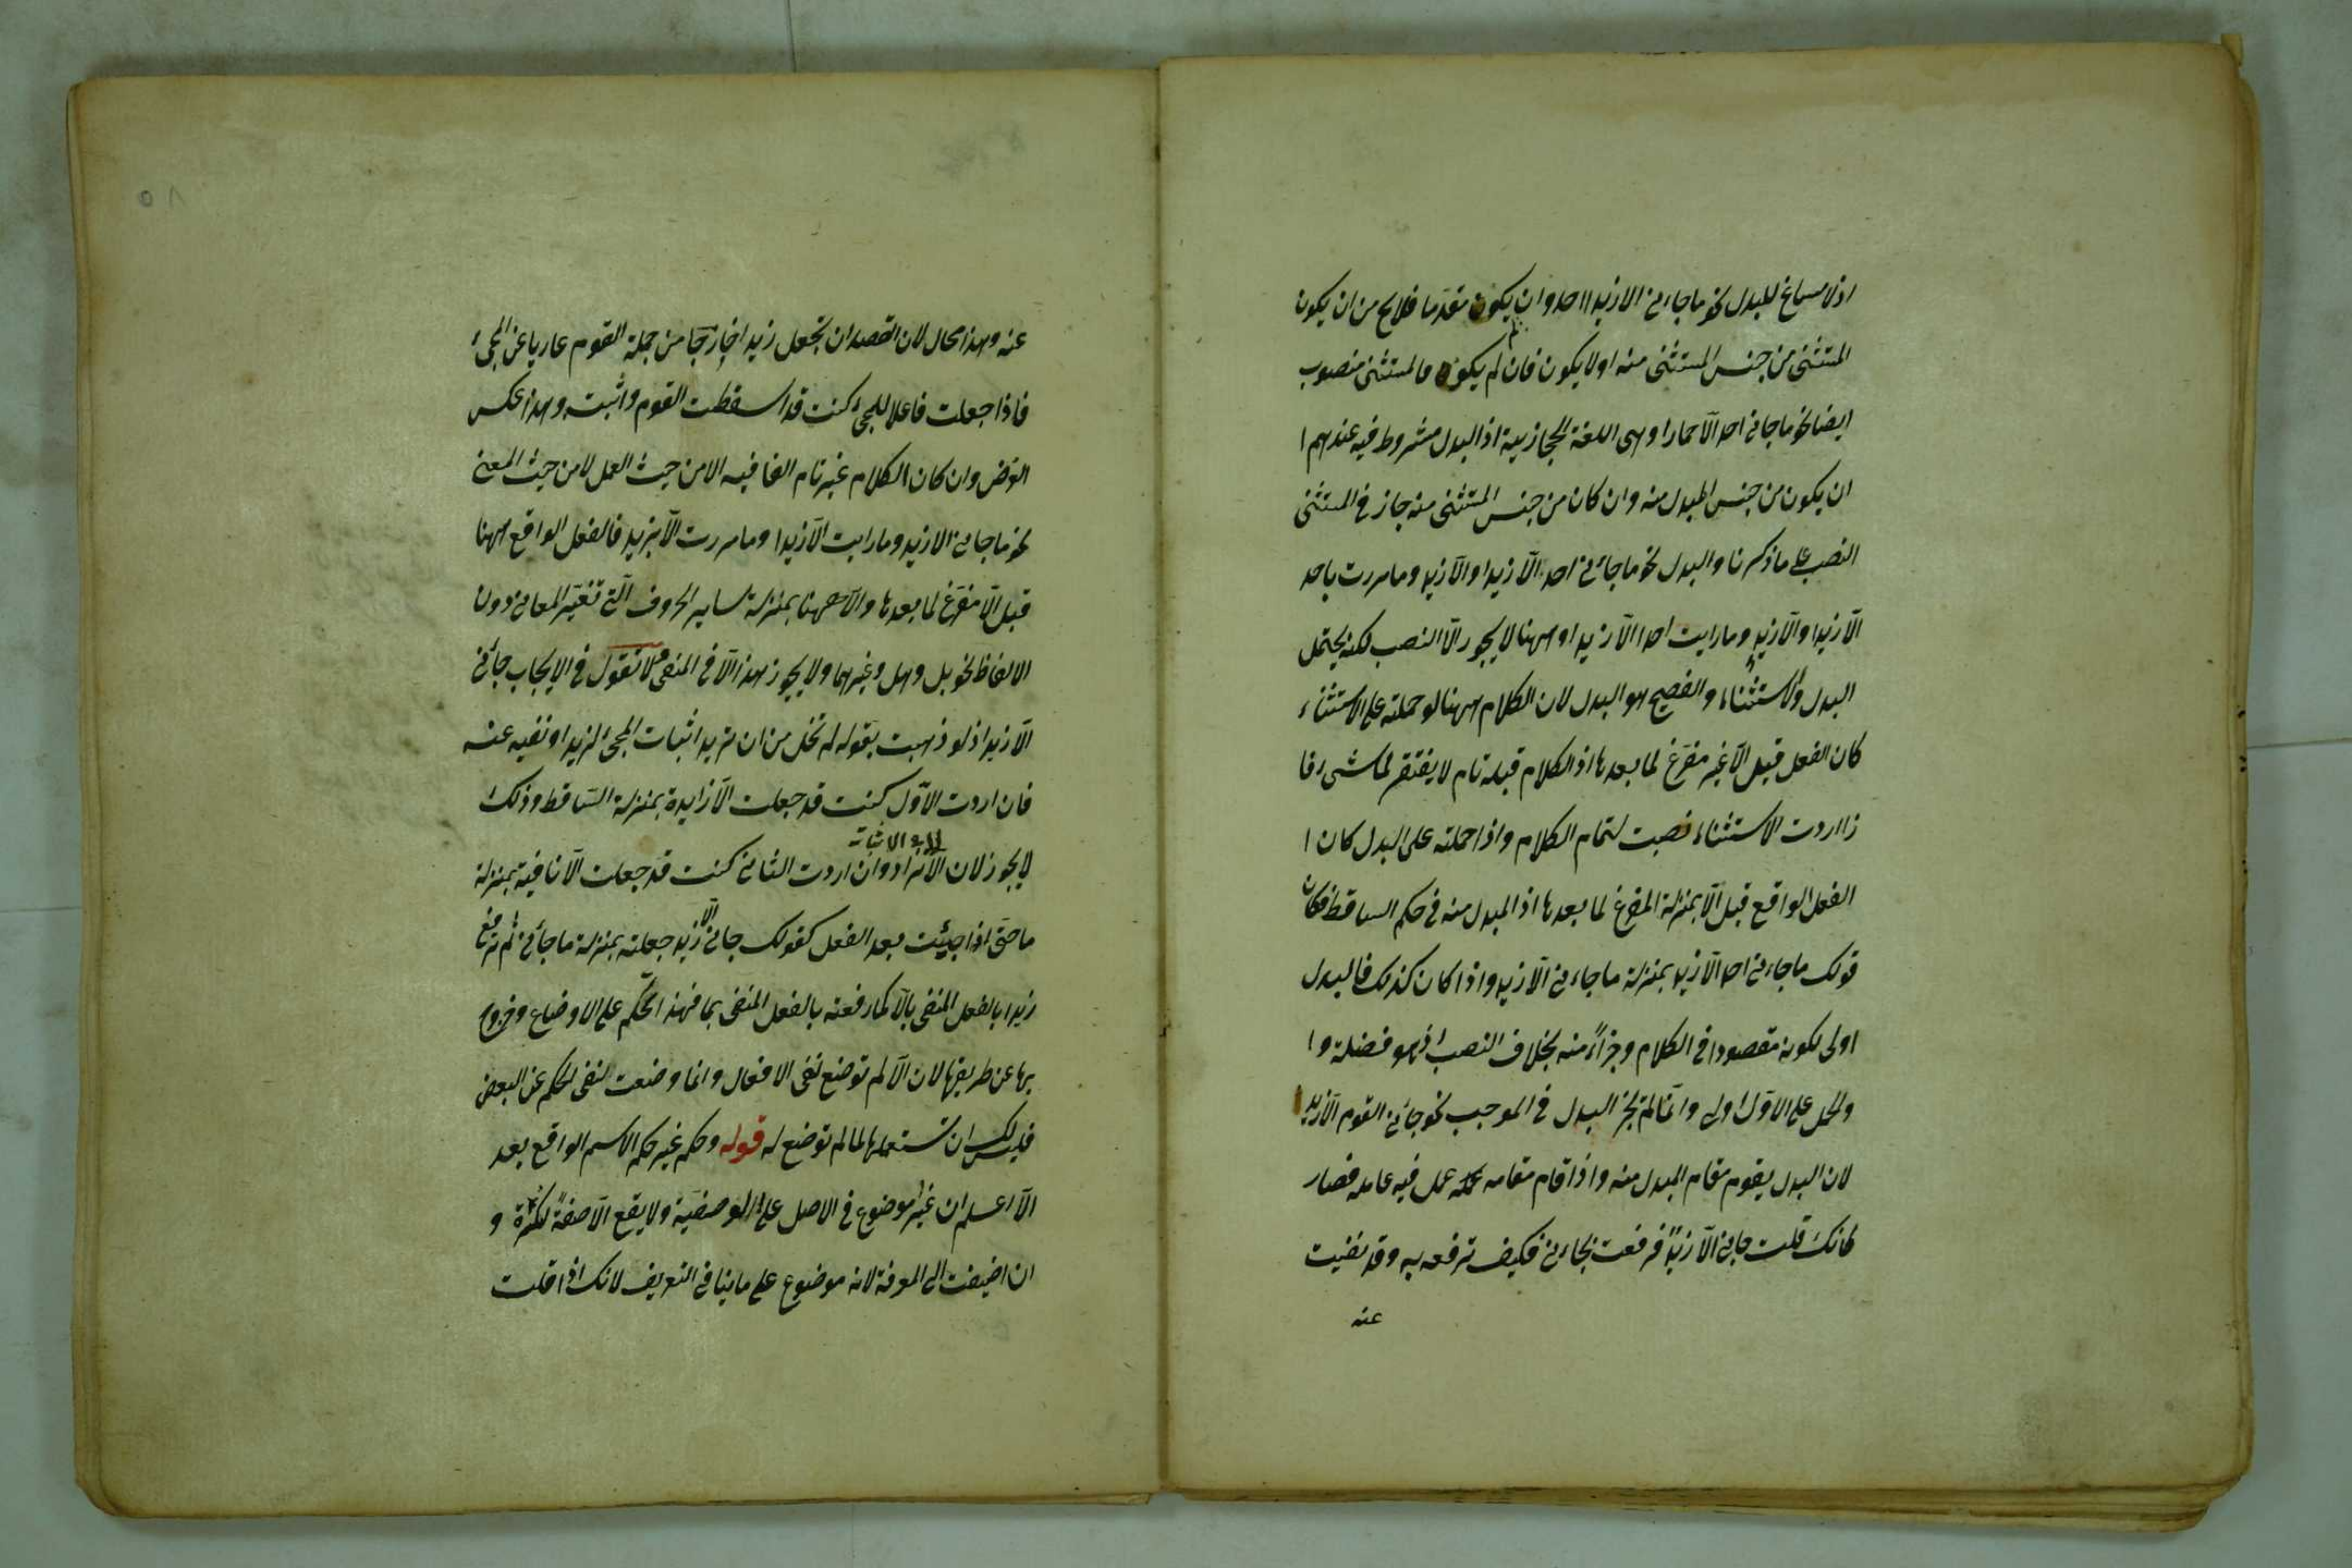 اذ لا مساغ للبدل نحو ما جاءنى الا زيدا احد وان يكون مقدما فلا يخ من ان يكون
المستثنى من جنس المستثنى منه او لا يكون فان لم يكون فالمستثنى منصوب
ايضا نحو ما جانى احد الّا حمارا وهى اللغة الحجازية اذ البدل مشروط فيه عندهم ا
ان يكون من جنس المبدل منه وان كان من جنس المستثنى منه جاز فى المستثنى
النصب على ما ذكرنا والبدل نحو ما جائنى احد الّا زيدا والّا زيد وما مررت باحد
الّا زيدا والّا زيد وما رايت احدا الّا زيدا وههنا لا يجوز الّا النصب لكنه يحتمل
البدل والاستثناء والفصيح هو البدل لان الكلام ههنا لو حملته على الاستثناء
كان الفعل قبل الّا غير مفرّغ لما بعدها اذ الكلام قبله تام لا يفتقر لما شىء فا
ذا اردت الاستثناء نصبت لتمام الكلام واذا حملته على البدل كان ا
الفعل الواقع قبل الّا بمنزلة المفرغ لما بعدها اذ المبدل منه فى حكم الساقط فكان
قولك ما جاءنى احد الّا زيد بمنزلة ما جاءنى الّا زيد واذا كان كذلك فالبدل
اولى لكونه مقصودا فى الكلام وجزاءً منه بخلاف النصب اذ هو فضلة وا
والحمل على الاوّل اولى وانّما لم يجز البدل فى الموجب نحو جائنى القوم الّا زيد
لان البدل يقوم مقام المبدل منه واذا قام مقامه عمل فيه عامله فصار
كانك قلت جانى الّا زيدٌ فرفعت بجاءنى فكيف ترفعه به وقد نفيت
عنه
عنه وهذا محال لان القصد ان تجعل زيدا خارجا من جملة القوم عاريا عن المجىء
فاذا جعلت فاعلا للمجىء كنت قد اسقطت القوم واثبته وهذا عكس
الغرض وان كان الكلام غير تام الغا فيه الا من حيث العمل لا من حيث المعنى
نحو ما جانى الا زيد وما رايت الّا زيدا وما مررت الّا بزيد فالفعل الواقع ههنا
قبل الّا مفرّغ لما بعدها والّا ههنا بمنزلة ساير الحروف التى تغيّر المعانى دون
الالفاظ نحو بل وهل وغيرهما ولا يجوز هذا الّا فى المنفى فلا نقول فى الايجاب جائنى
الّا زيد اذ لو ذهبت بقوله لم تخل من ان تريد اثبات المجىء لزيد او نفيه عنه
فان اردت الاوّل كنت قد جعلت الّا زايدة بمنزلة السّاقط وذلك
الاثبات
لا يجوز لان الا تزاد وان اردت الثانى كنت قد جعلت الّا نافية بمنزلة
ما حتى اذا جيئت بعد الفعل كقولك جانى الّا زيد جعلته بمنزلة ما جائنى ثم ترفع
زيدا بالفعل المنفى بالّا كما رفعته بالفعل المنفى بما فهذا تحكّم على الاوضاع وخروج
بها عن طريقها لان الّا لم توضع لنفى الافعال وانما وضعت لنفى الحكم عن البعض
فليس لك ان تستعملها لما لم توضع له قوله وحكم غير حكم الاسم الواقع بعد
الّا اعلم ان غير موضوع فى الاصل على الوصفيّة ولا يقع الّا صفةً لنكرة و
ان اضيفت الى المعرفة لانه موضوع على ما ينافى التعريف لانك اذا قلت